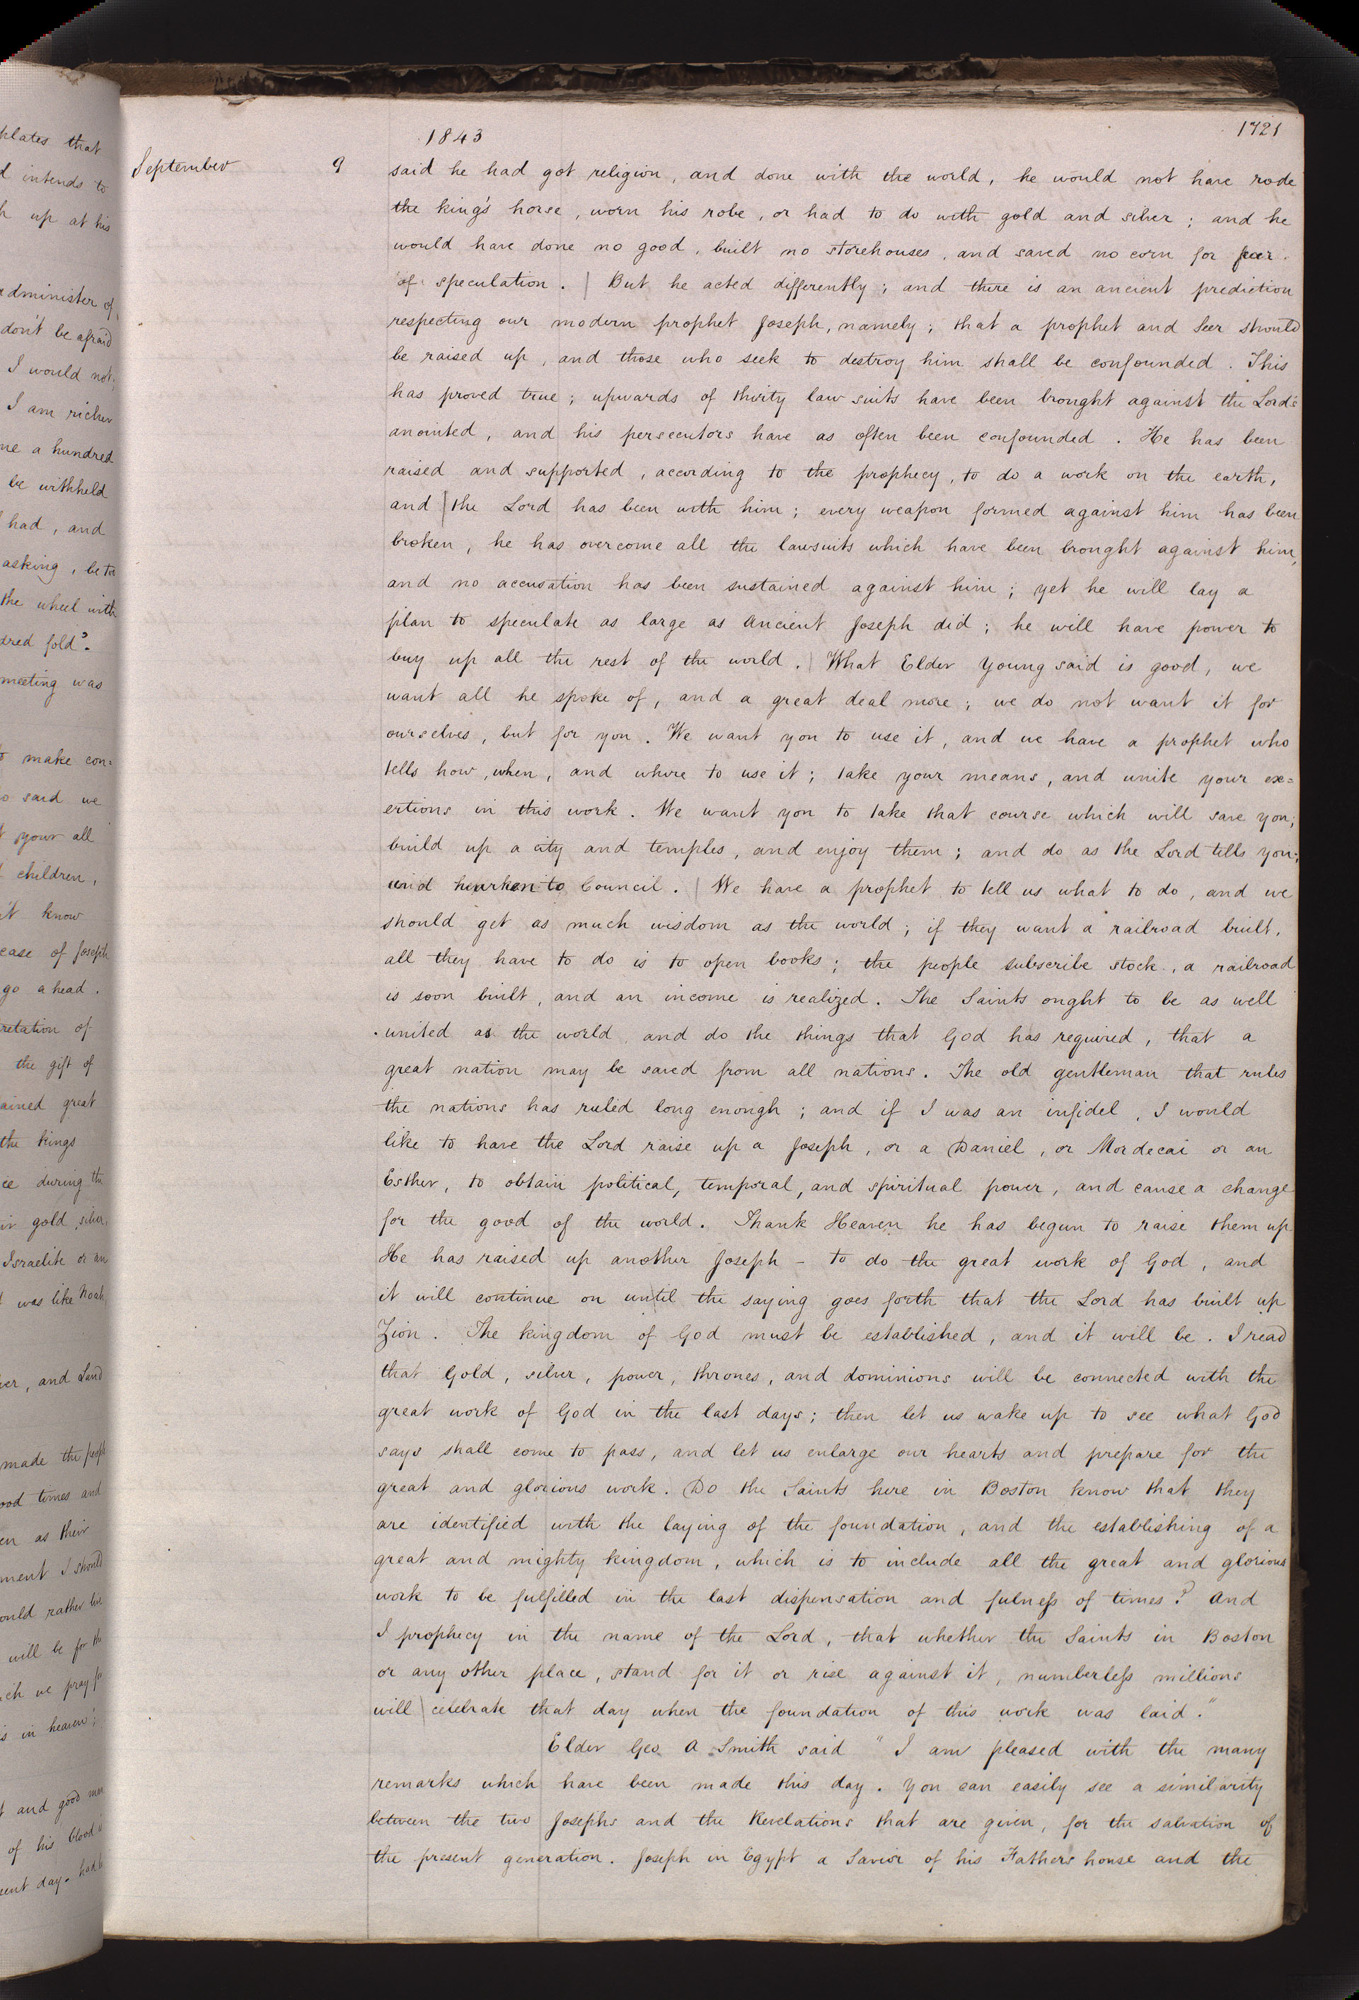 plates that
intends to
up at his
administer of
don't be afraid
I would not,
I am richer
me a hundred
be withheld
had, and
asking, be
the wheel with
dred fold".
meeting was
make con=
said we
your all
children,
know
case of Joseph
go ahead.
retation of
the gift of
ained great
the kings
ce during the
gold, silver,
Israelite or an
was like Noah,
er, and Land
made the people
good times and
en as their
ment I should
ould rather live
will be for the
ch we pray for
is in heaven;
and good men
of his blood
sent day.
1843
1721
September 9
said he had got religion, and done with the world, he would not have rode
the king's horse, worn his robe, or had to do with gold and silver; and he
would have done no good, built no storehouses, and saved no corn for fear
of speculation. | But he acted differently; and there is an ancient prediction
respecting our modern prophet Joseph, namely; that a prophet and Seer should
be raised up, and those who seek to destroy him shall be confounded. This
has proved true; upwards of thirty law suits have been brought against the Lord's
anointed, and his persecutors have as often been confounded. He has been
raised and supported, according to the prophecy, to do a work on the earth,
and | the Lord has been with him; every weapon formed against him has been
broken, he has overcome all the lawsuits which have been brought against him,
and no accusation has been sustained against him; yet he will lay a
plan to speculate as large as Ancient Joseph did; he will have power to
buy up all the rest of the world. | What Elder Young said is good, we
want all he spoke of, and a great deal more; we do not want it for
ourselves, but for you. We want you to use it, and we have a prophet who
tells how, when, and where to use it; take your means, and unite your ex=
ertions in this work. We want you to take that course which will save you;
build up a city and temples, and enjoy them; and do as the Lord tells you;
and hearken to Council. | We have a prophet to tell us what to do, and we
should get as much wisdom as the world; if they want a railroad built,
all they have to do is to open books; the people subscribe stock, a railroad
is soon built, and an income is realized. The Saints ought to be as well
united as the world, and do the things that God has required, that a
great nation may be saved from all nations. The old gentleman that rules
the nations has ruled long enough; and if I was an infidel, I would
like to have the Lord raise up a Joseph, or a Daniel, or Mordecai or an
Esther, to obtain political, temporal, and spiritual power, and cause a change
for the good of the world. Thank Heaven he has begun to raise them up
He has raised up another Joseph – to do the great work of God, and
it will continue on until the saying goes forth that the Lord has built up
Zion. The kingdom of God must be established, and it will be. I read
that Gold, silver, power, thrones, and dominions will be connected with the
great work of God in the last days; then let us wake up to see what God
says shall come to pass, and let us enlarge our hearts and prepare for the
great and glorious work. Do the Saints here in Boston know that they
are identified with the laying of the foundation, and the establishing of a
great and mighty kingdom, which is to include all the great and glorious
work to be fulfilled in the last dispensation and fulness of times? And
I prophecy in the name of the Lord, that whether the Saints in Boston
or any other place, stand for it or rise against it, numberless millions
will | celebrate that day when the foundation of this work was laid."
Elder Geo. A. Smith said "I am pleased with the many
remarks which have been made this day. You can easily see a similarity
between the two Josephs and the Revelations that are given, for the salvation of
the present generation. Joseph in Egypt a Savior of his Father's house and the